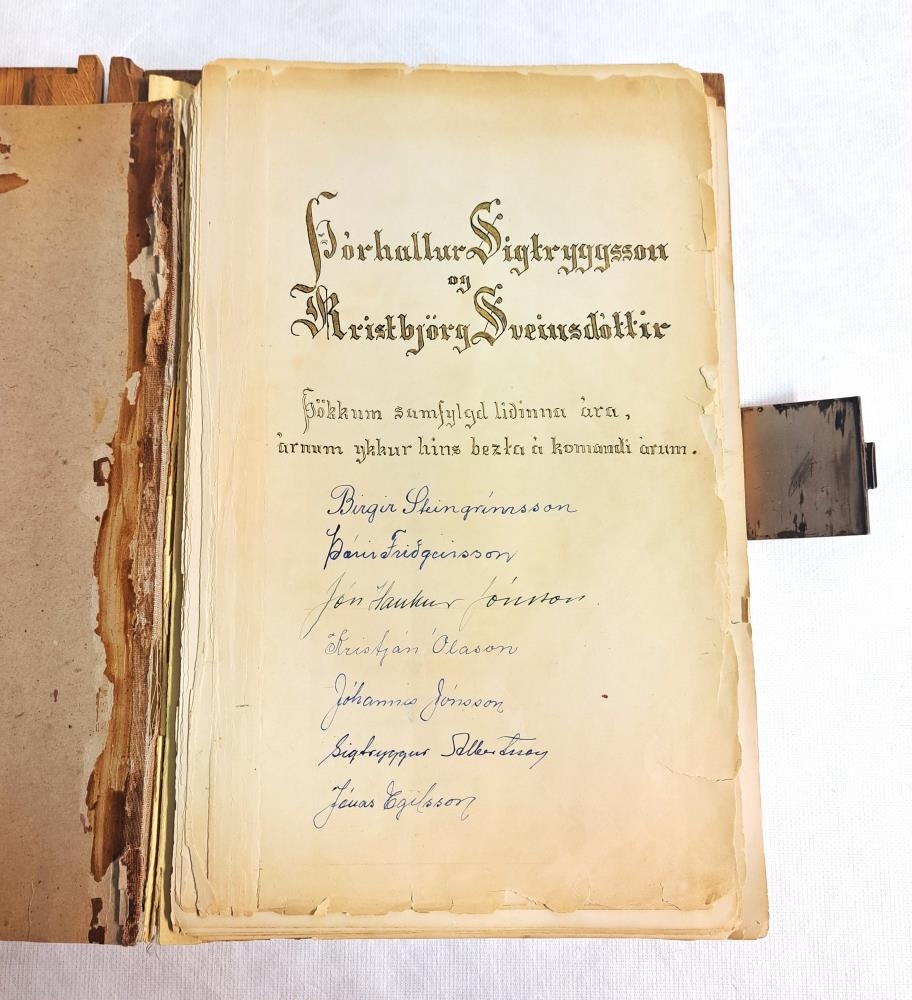 Þórhallur Sigtryggsson
og
Kristbjörg Sveinsdóttir
Þökkum samfylgd liðinna ára,
árnum ykkur hins bezta á komandi árum.
Birgir Steingrímsson
Þórir Friðgeirsson
Jón Haukur Jónsson.
Kristján Ólason
Jóhannes Jónsson
Sigtryggur Albertsson
Jónas Egilsson